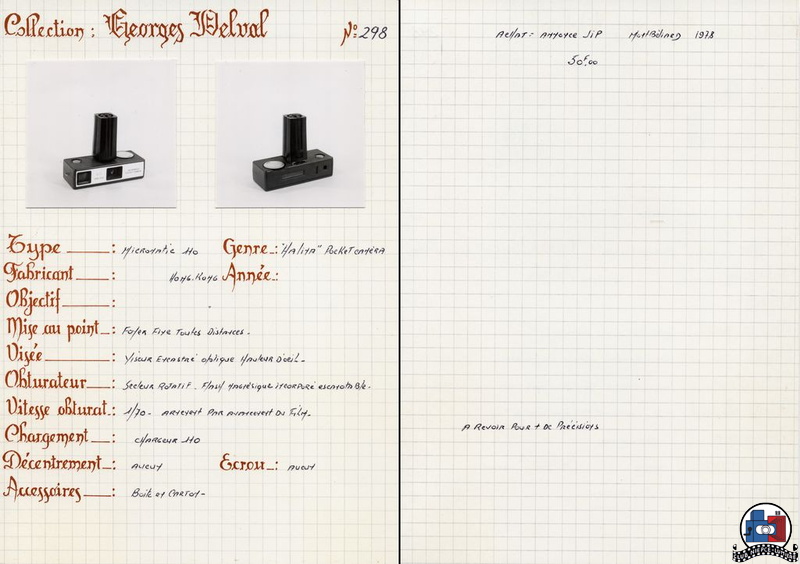 Collection : Georges Delval
N° 298
Type : Micromatic 110 Genre : "Halina" Pocket camera
Fabricant : Hong.Kong Année :
Objectif :
Mise au point : Foyer Fixe Toutes Distances.
Visée : Viseur Encastré optique Hauteur D'oeil.
Obturateur : Secteur Rotatif. Flash magnésique incorporé escamotable.
Vitesse obturat. : 1/70. Armement Par avancement Du Film.
Chargement : chargeur 110
Décentrement : aucun Ecrou : aucun
Accessoires : Boite en Carton
Achat : annonce JiP 1978
50F.00
A Revoir Pour + De Précisions